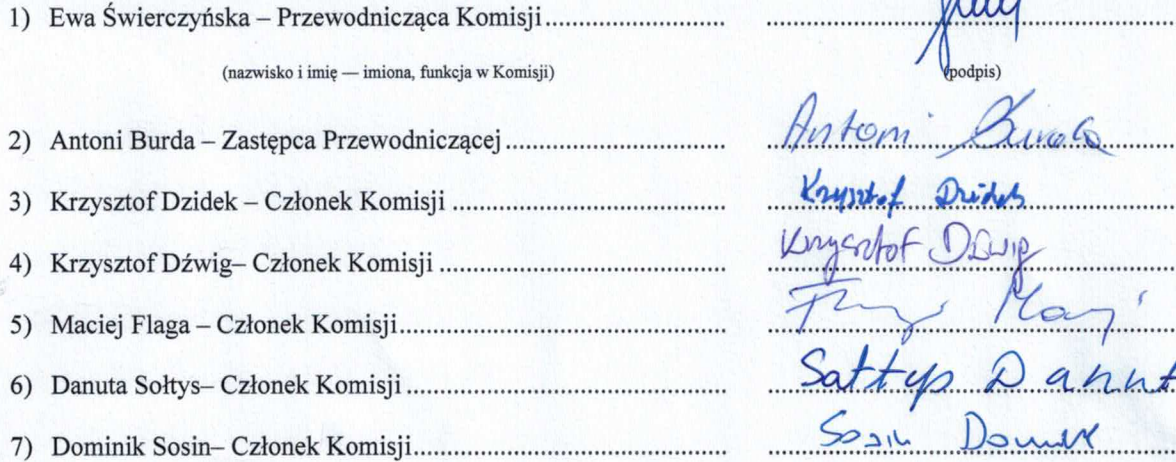 1) Ewa Świerczyńska – Przewodnicząca Komisji
(nazwisko i imię — imiona, funkcja w Komisji) (podpis)
2) Antoni Burda – Zastępca Przewodniczącej Antoni Burda
3) Krzysztof Dzidek – Członek Komisji Krzysztof Dzidek
4) Krzysztof Dźwig– Członek Komisji Krzysztof Dźwig
5) Maciej Flaga – Członek Komisji
6) Danuta Sołtys– Członek Komisji Sołtys Danut
7) Dominik Sosin– Członek Komisji Sosin Dominik